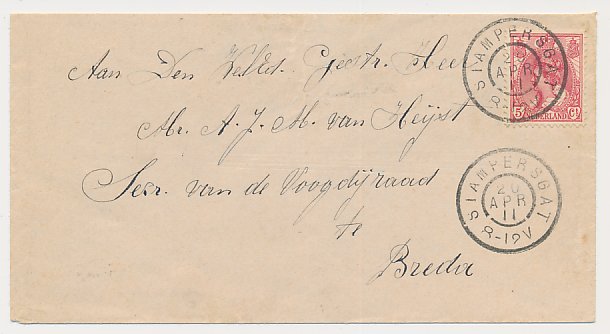 Aan Den Weled. Gestr. Heer
Mr. A. J. M. van Heijst
Secr. van de Voogdijraad
te
Breda
STAMPERSGAT
APR
5 Ct
NEDERLAND
STAMPERSGAT
20
APR
11
8-12V